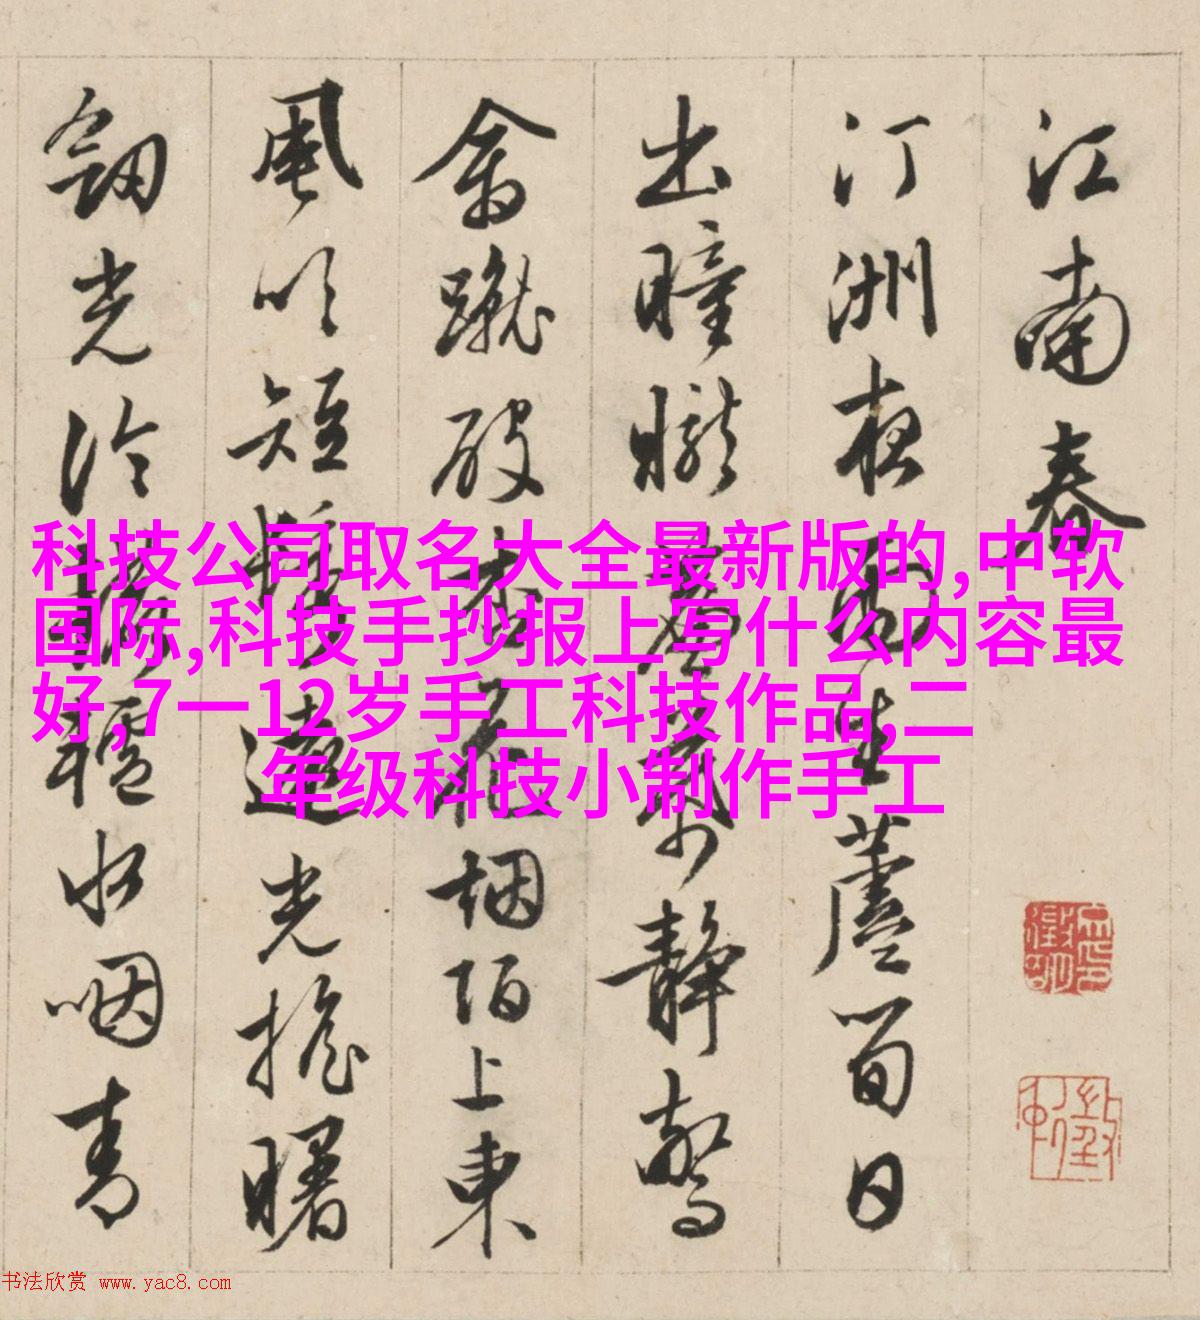 江南春
汀洲夜雨生蘆筍日
出曈曨簾幕靜驚
禽蹴破杏花烟陌上東
風吹短遠光搖曙
劒光冷水咽青
科技公司取名大全最新版的,中软
国际,科技手抄报上写什么内容最
好,7一12岁手工科技作品,二
年级科技小制作手工
书法欣赏 www.yac8.com